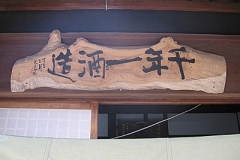 千年一酒造